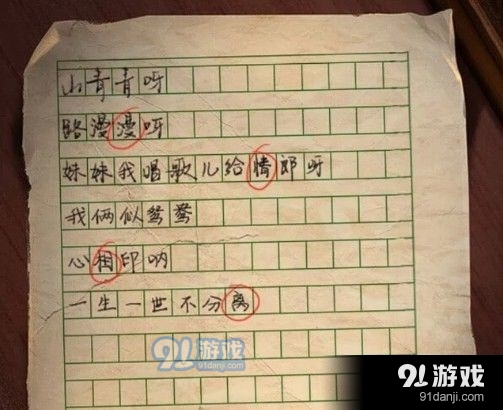 山青青呀
路漫漫呀
妹妹我唱歌儿给情郎呀
我俩似鸳鸯
心相印呐
一生一世不分离
91游戏
91danji.com
91游戏
91danji.com